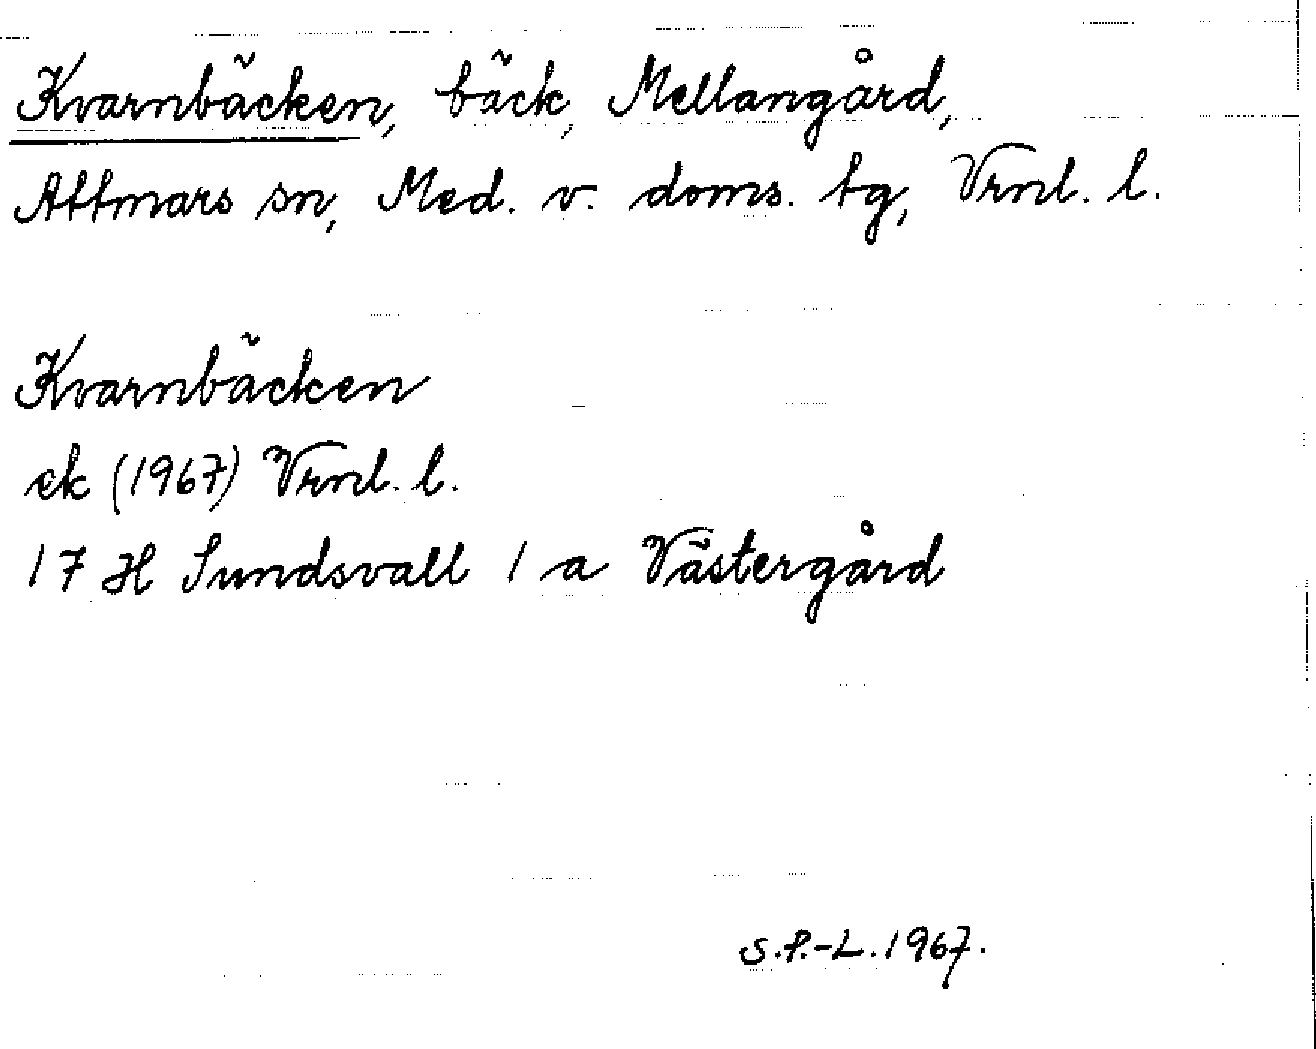 Kvarnbäcken, bäck, Mellangård,
Attmars sn, Med. v. doms. tg, Vrnl. l.
Kvarnbäcken
ek (1967) Vrnl. l.
17 H Sundsvall 1 a Västergård
S.P.-L. 1967.